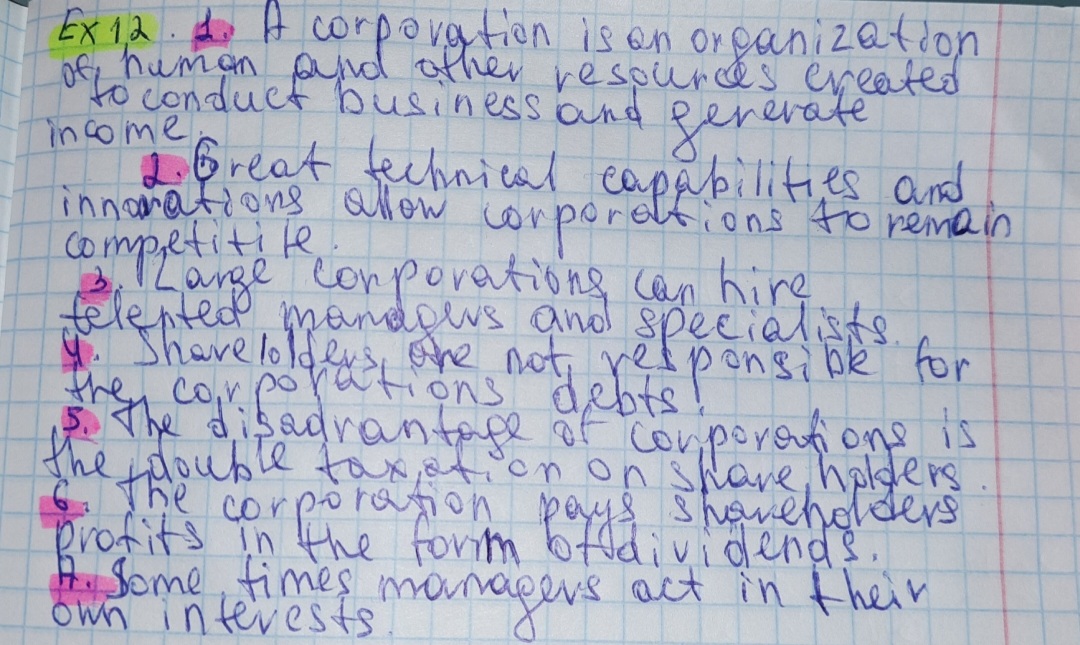 Ex 12. 1. A corporation is an organization
of human and other resources created
to conduct business and generate
income.
2. Great technical capabilities and
innovations allow corporations to remain
competitile.
3. Large corporations can hire
telented managers and specialists.
4. Shareholders are not responsible for
the corporations debts.
5. The disadvantage of corporations is
the double taxation on share holders.
6. The corporation pays shareholders
profits in the form of dividends.
7. Some times managers act in their
own interests.